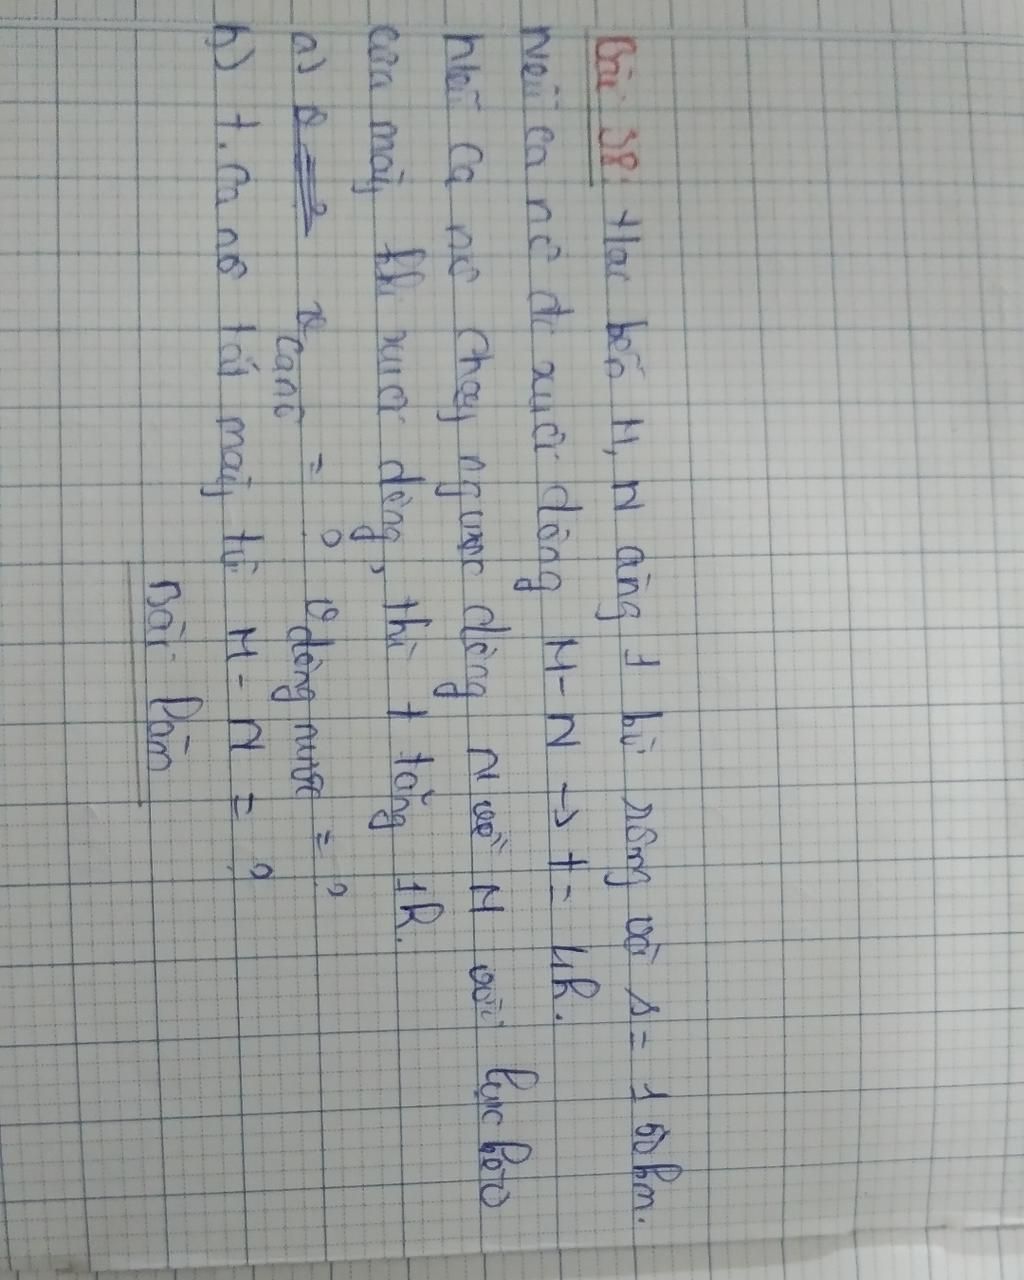 Bài 38: Hai bến M, N cùng 1 bờ sông và s = 150km.
Nếu ca nô đi xuôi dòng M - N → t = 4h.
Nếu ca nô chạy ngược dòng N về M với lực kéo
của máy khi xuôi dòng, thì t tăng 1h.
a) v ca nô = ? v dòng nước = ?
b) t. ca nô tắt máy từ M - N = ?
Bài làm